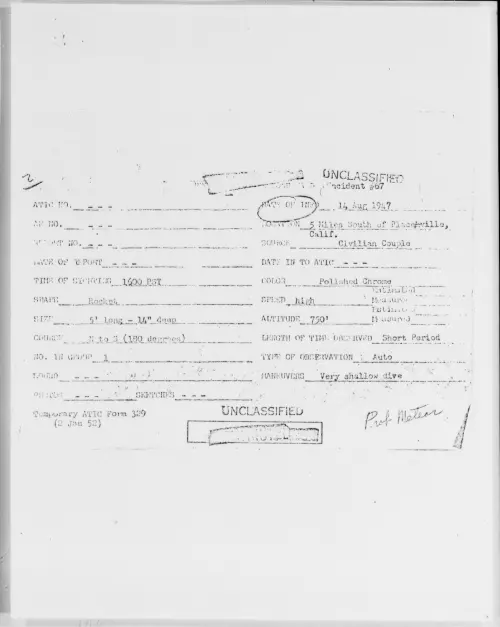 2
UNCLASSIFIED
Incident #67
ATIC NO. - - - DATE OF INFO 14 Aug 1947
AF NO. - - - LOCATION 5 Miles South of Placerville,
Calif.
REPORT NO. - - - SOURCE Civilian Couple
DATE OF REPORT - - - DATE IN TO ATIC - - -
TIME OF SIGHTING 1600 PST COLOR Polished Chrome
Estimated
SHAPE Rocket SPEED high Measured
Estimated
SIZE 5' long - 14" deep ALTITUDE 750' Measured
COURSE N to S (180 degrees) LENGTH OF TIME OBSERVED Short Period
NO. IN GROUP 1 TYPE OF OBSERVATION Auto
SOUND - - - MANEUVERS Very shallow dive
PHOTOS - - - SKETCHES - - -
Temporary ATIC Form 329
(2 Jan 52)
UNCLASSIFIED
Prob Meteor